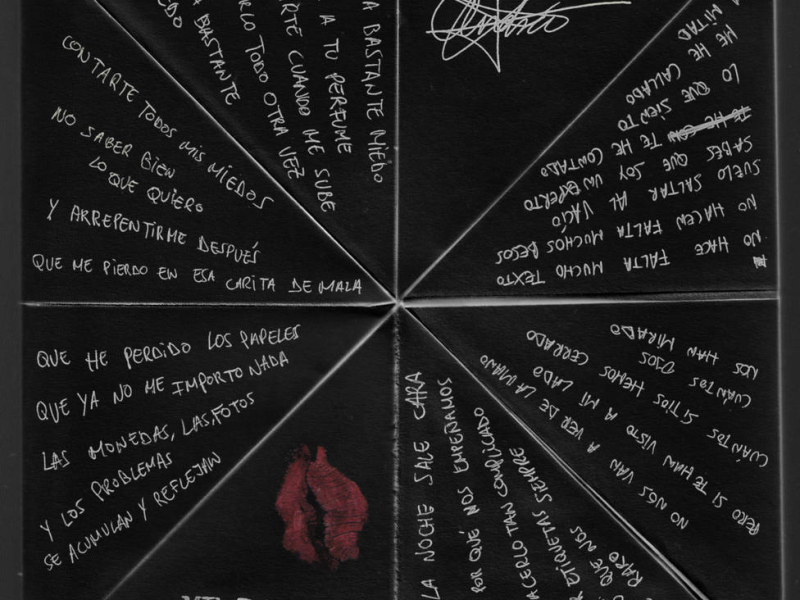 CONTARTE TODOS MIS MIEDOS
NO SABER BIEN
LO QUE QUIERO
Y ARREPENTIRME DESPUÉS
QUE ME PIERDO EN ESA CARITA DE MALA
A BASTANTE MIEDO
A TU PERFUME
RTE CUANDO ME SUBE
RLO TODO OTRA VEZ
A BASTANTE
EDO
A MITAD
ME HE CALLADO
LO QUE SIENTO
TE HE CONTADO
SABES QUE SOY UN EXPERTO
SUELO SALTAR AL VACÍO
NO HACEN FALTA MUCHOS BESOS
NO HACE FALTA MUCHO TEXTO
QUE HE PERDIDO LOS PAPELES
QUE YA NO ME IMPORTO NADA
LAS MONEDAS, LAS FOTOS
Y LOS PROBLEMAS
SE ACUMULAN Y REFLEJAN
LA NOCHE SALE CARA
POR QUÉ NOS EMPEÑAMOS
ACERLO TAN COMPLICADO
R ETIQUETAS SIEMPRE
QUE NOS
RARO
NO NOS VAN A VER DE LA MANO
PERO SI TE HAN VISTO A MI LADO
CUÁNTOS SITIOS HEMOS CERRADO
CUÁNTOS OJOS
NOS HAN MIRADO